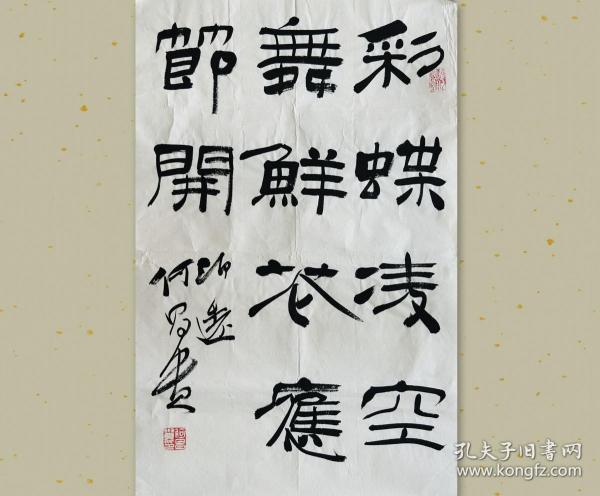 彩蝶凌空
舞鮮花應
節開
何
書
孔夫子旧书网
www.kongfz.com